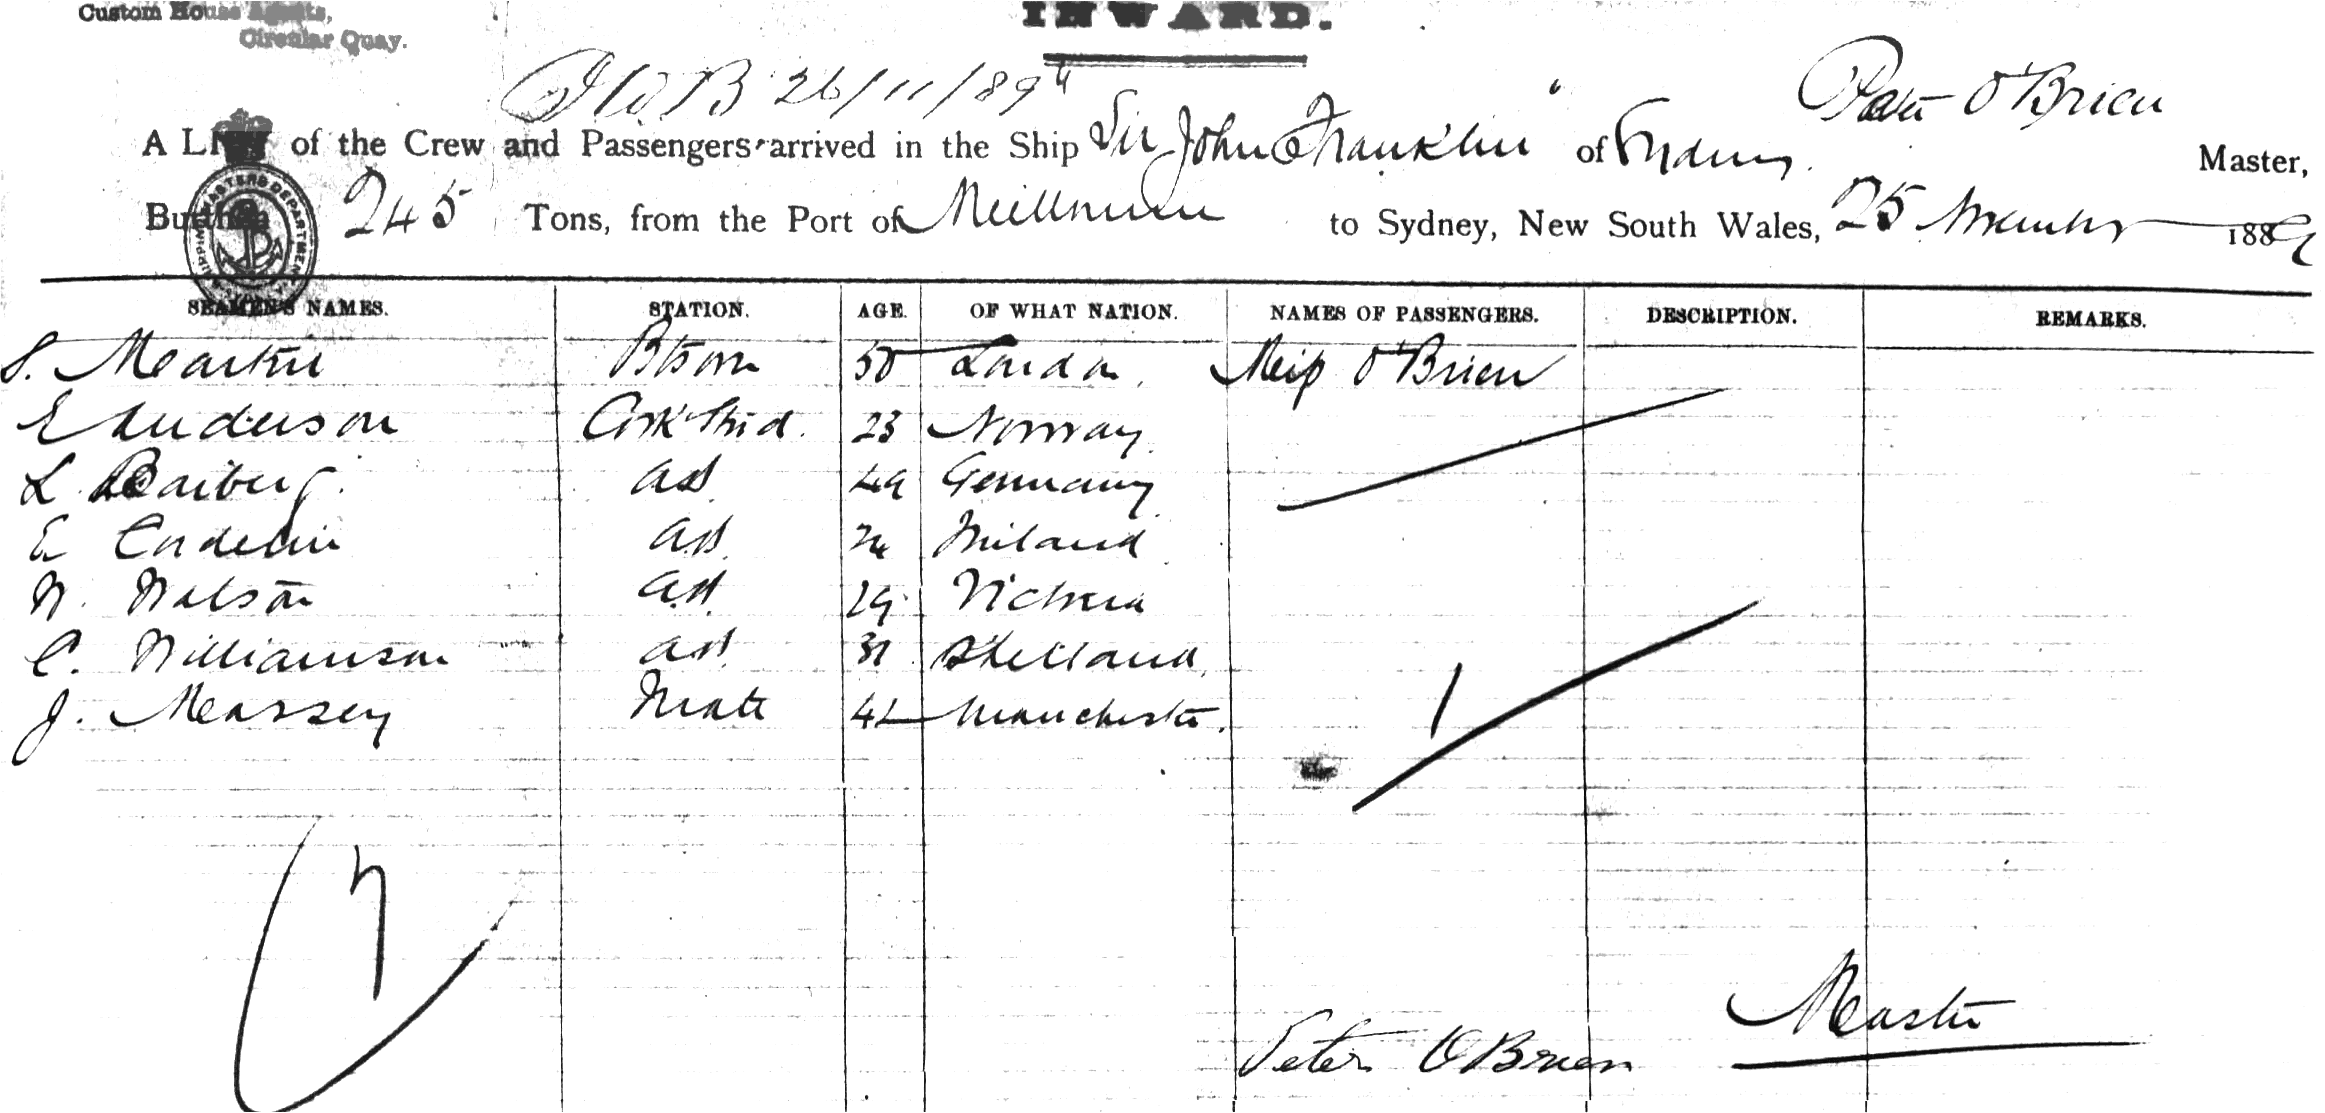 Custom House Agents,
Circular Quay.
INWARD.
26/11/89
Peter O'Brien
A LIST of the Crew and Passengers arrived in the Ship "Sir John Franklin" of Sydney. Master,
Burthen 245 Tons, from the Port of Melbourne to Sydney, New South Wales, 25 November 1889
SEAMEN'S NAMES. STATION. AGE. OF WHAT NATION. NAMES OF PASSENGERS. DESCRIPTION. REMARKS.
S. Martin Btswn 50 London. Miss O'Brien
E Anderson Ck & Stid. 23 Norway.
L. Baiberg. AB. 49 Germany
E Endelin AB. 24 Finland
W. Watson AB. 29 Victoria
C. Williamson AB. 31 Shetland,
J. Massey Mate 42 Manchester.
1
7
Master
Peter O'Brien
SHIPPING MASTERS DEPARTMENT